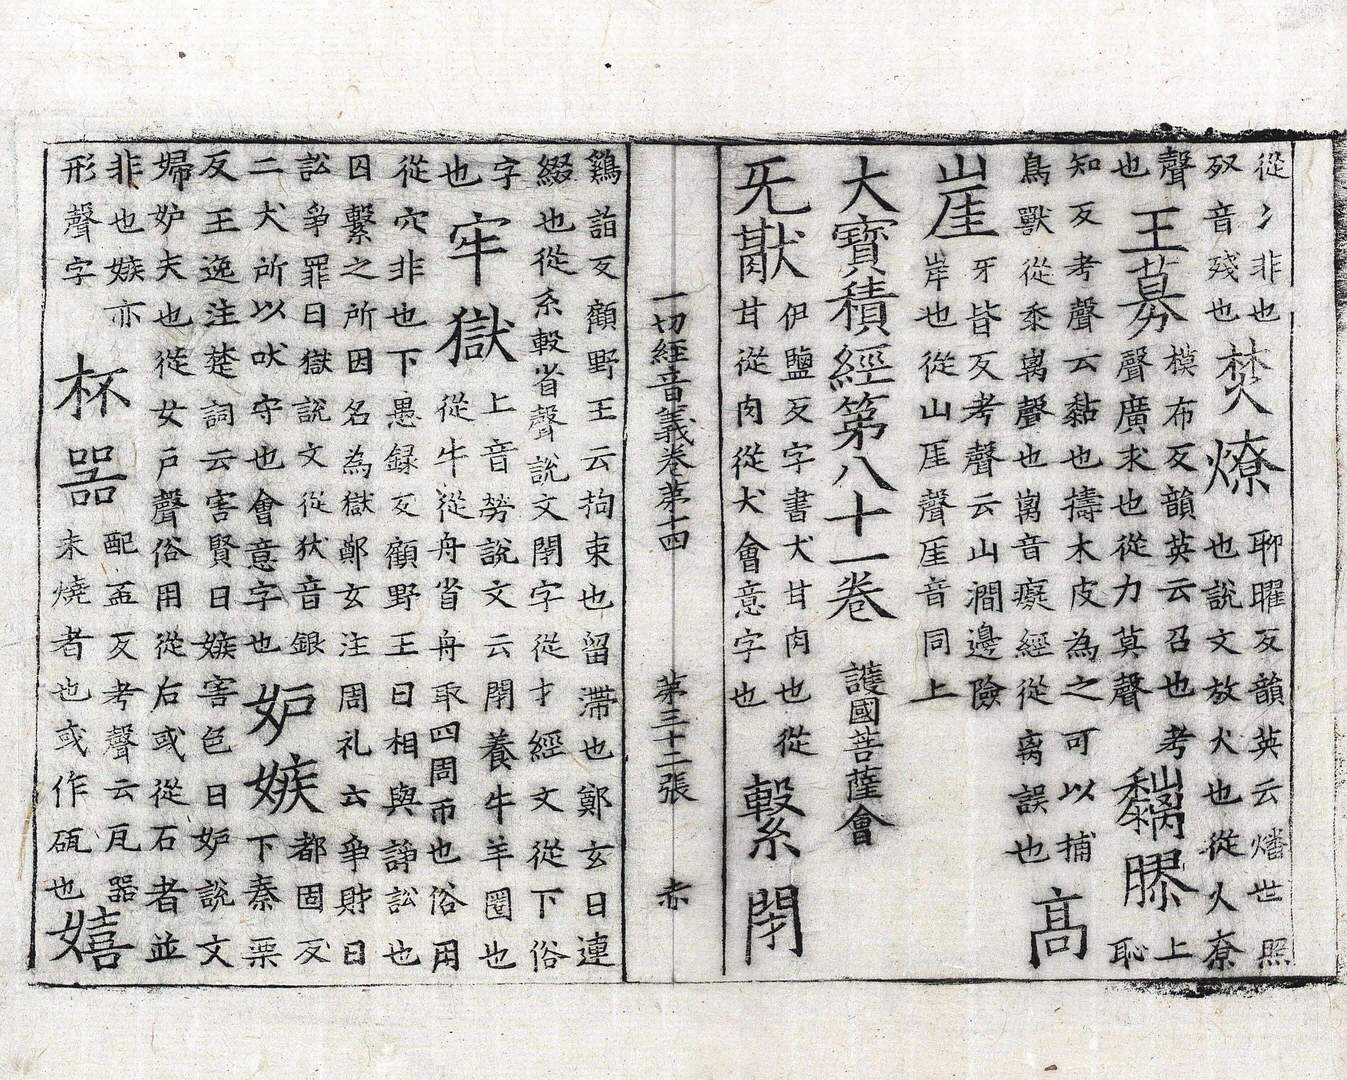 從冫非也
㱚音殘也
焚燎
聊曜反韻英云燔世照
也說文放火也從火尞
聲
也
王募
模布反韻英云召也考
聲廣求也從力莫聲
黐膠
上
恥
知反考聲云黏也擣木皮為之可以捕
鳥獸從黍离聲也离音癡經從离誤也
高
崖
牙皆反考聲云山澗邊險
岸也從山厓聲厓音同上
大寶積經第八十一卷 護國菩薩會
旡猒
伊鹽反字書犬甘肉也從
甘從肉從犬會意字也
繫閉
一切經音義卷第十四 第三十二張 赤
鷄詣反顧野王云拘束也留滯也鄭玄曰連
綴也從系毄省聲說文閉字從才經文從下俗
字
也
牢獄
上音勞說文云閉養牛羊圈也
從牛從舟省舟取四周帀也俗用
從穴非也下愚録反顧野王曰相與諍訟也
囚繫之所因名為獄鄭玄注周礼云爭財曰
訟爭罪曰獄說文從㹜音銀
二犬所以吠守也會意字也
妒嫉
都固反
下秦栗
反王逸注楚詞云害賢曰嫉害色曰妒說文
婦妒夫也從女戶聲俗用從后或從石者並
非也嫉亦
形聲字
杯器
配盃反考聲云瓦器
未燒者也或作㼎也
嬉